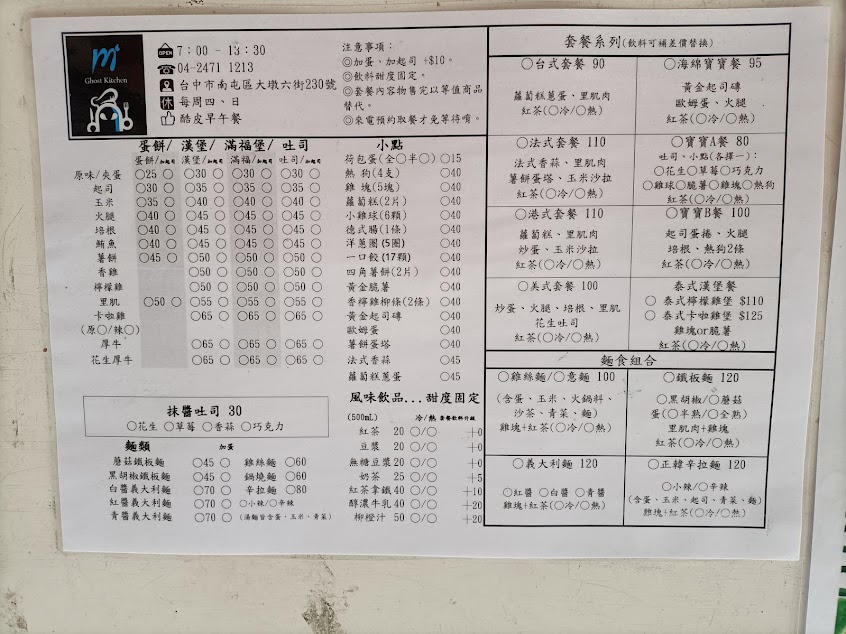 m
Ghost Kitchen
OPEN 7:00 - 13:30
04-2471 1213
台中市南屯區大墩六街230號
休 每周四、日
酷皮早午餐
注意事項:
◎加蛋、加起司 +$10。
◎飲料甜度固定。
◎套餐內容物售完以等值商品替代。
◎來電預約取餐才免等待唷。
蛋餅/ 漢堡/ 滿福堡/ 吐司
蛋餅/加起司 漢堡/加起司 滿福/加起司 吐司/加起司
原味/夾蛋 ○25 ○ ○30 ○ ○30 ○ ○30 ○
起司 ○30 ○ ○35 ○ ○35 ○ ○35 ○
玉米 ○35 ○ ○40 ○ ○40 ○ ○40 ○
火腿 ○40 ○ ○45 ○ ○45 ○ ○45 ○
培根 ○40 ○ ○45 ○ ○45 ○ ○45 ○
鮪魚 ○40 ○ ○45 ○ ○45 ○ ○45 ○
薯餅 ○45 ○ ○50 ○ ○50 ○ ○50 ○
香雞 ○50 ○ ○50 ○ ○50 ○
檸檬雞 ○50 ○ ○50 ○ ○50 ○
里肌 ○50 ○ ○55 ○ ○55 ○ ○55 ○
卡啦雞 ○65 ○ ○65 ○ ○65 ○
(原○/辣○)
厚牛 ○65 ○ ○65 ○ ○65 ○
花生厚牛 ○65 ○ ○65 ○ ○65 ○
抹醬吐司 30
○花生 ○草莓 ○香蒜 ○巧克力
麵類 加蛋
蘑菇鐵板麵 ○45 ○ 雞絲麵 ○60
黑胡椒鐵板麵 ○45 ○ 鍋燒麵 ○60
白醬義大利麵 ○70 ○ 辛拉麵 ○80
紅醬義大利麵 ○70 ○ ○小辣/○辛辣
青醬義大利麵 ○70 ○ (湯麵皆含蛋、玉米、青菜)
小點
荷包蛋(全○半○) ○15
熱狗(4支) ○40
雞塊(5塊) ○40
蘿蔔糕(2片) ○40
小雞球(6顆) ○40
德式腸(1條) ○40
洋蔥圈(5圈) ○40
一口餃(17顆) ○40
四角薯餅(2片) ○40
黃金脆薯 ○40
香檸雞柳條(2條) ○40
黃金起司磚 ○40
歐姆蛋 ○40
薯餅蛋塔 ○40
法式香蒜 ○45
蘿蔔糕蔥蛋 ○45
風味飲品...甜度固定
(500mL) 冷/熱 套餐飲料升級
紅茶 20 ○/○ +0
豆漿 20 ○/○ +0
無糖豆漿 20 ○/○ +0
奶茶 25 ○/○ +5
紅茶拿鐵 40 ○/○ +10
醇濃牛乳 40 ○/○ +20
柳橙汁 50 ○/○ +20
套餐系列(飲料可補差價替換)
○台式套餐 90
蘿蔔糕蔥蛋、里肌肉
紅茶(○冷/○熱)
○海綿寶寶餐 95
黃金起司磚
歐姆蛋、火腿
紅茶(○冷/○熱)
○法式套餐 110
法式香蒜、里肌肉
薯餅蛋塔、玉米沙拉
紅茶(○冷/○熱)
○寶寶A餐 80
吐司、小點(各擇一):
○花生○草莓○巧克力
○雞球○脆薯○雞塊○熱狗
紅茶(○冷/○熱)
○港式套餐 110
蘿蔔糕、里肌肉
炒蛋、玉米沙拉
紅茶(○冷/○熱)
○寶寶B餐 100
起司蛋捲、火腿
培根、熱狗2條
紅茶(○冷/○熱)
○美式套餐 100
炒蛋、火腿、培根、里肌
花生吐司
紅茶(○冷/○熱)
泰式漢堡餐
○ 泰式檸檬雞堡 $110
○ 泰式卡啦雞堡 $125
雞塊or脆薯
紅茶(○冷/○熱)
麵食組合
○雞絲麵/○意麵 100
(含蛋、玉米、火鍋料、
沙茶、青菜、麵)
雞塊+紅茶(○冷/○熱)
○鐵板麵 120
○黑胡椒/○蘑菇
蛋(○半熟/○全熟)
里肌肉+雞塊
紅茶(○冷/○熱)
○義大利麵 120
○紅醬 ○白醬 ○青醬
雞塊+紅茶(○冷/○熱)
○正韓辛拉麵 120
○小辣/○辛辣
(含蛋、玉米、起司、青菜、麵)
雞塊+紅茶(○冷/○熱)